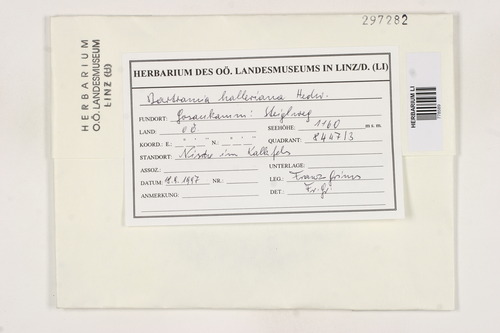 297282
HERBARIUM
O.Ö. LANDESMUSEUM
LINZ (LI)
HERBARIUM DES OÖ. LANDESMUSEUMS IN LINZ/D. (LI)
Bartramia halleriana Hedw.
FUNDORT: Gosaukamm: Steiglweg
LAND: OÖ SEEHÖHE: 1160 m s. m.
KOORD.: E: N: QUADRANT: 8447/3
STANDORT: Nische im Kalkfels
ASSOZ.: UNTERLAGE:
DATUM: 1997 NR.: LEG.: Franz Grims
ANMERKUNG: DET.: Fr. Gr.
HERBARIUM LI